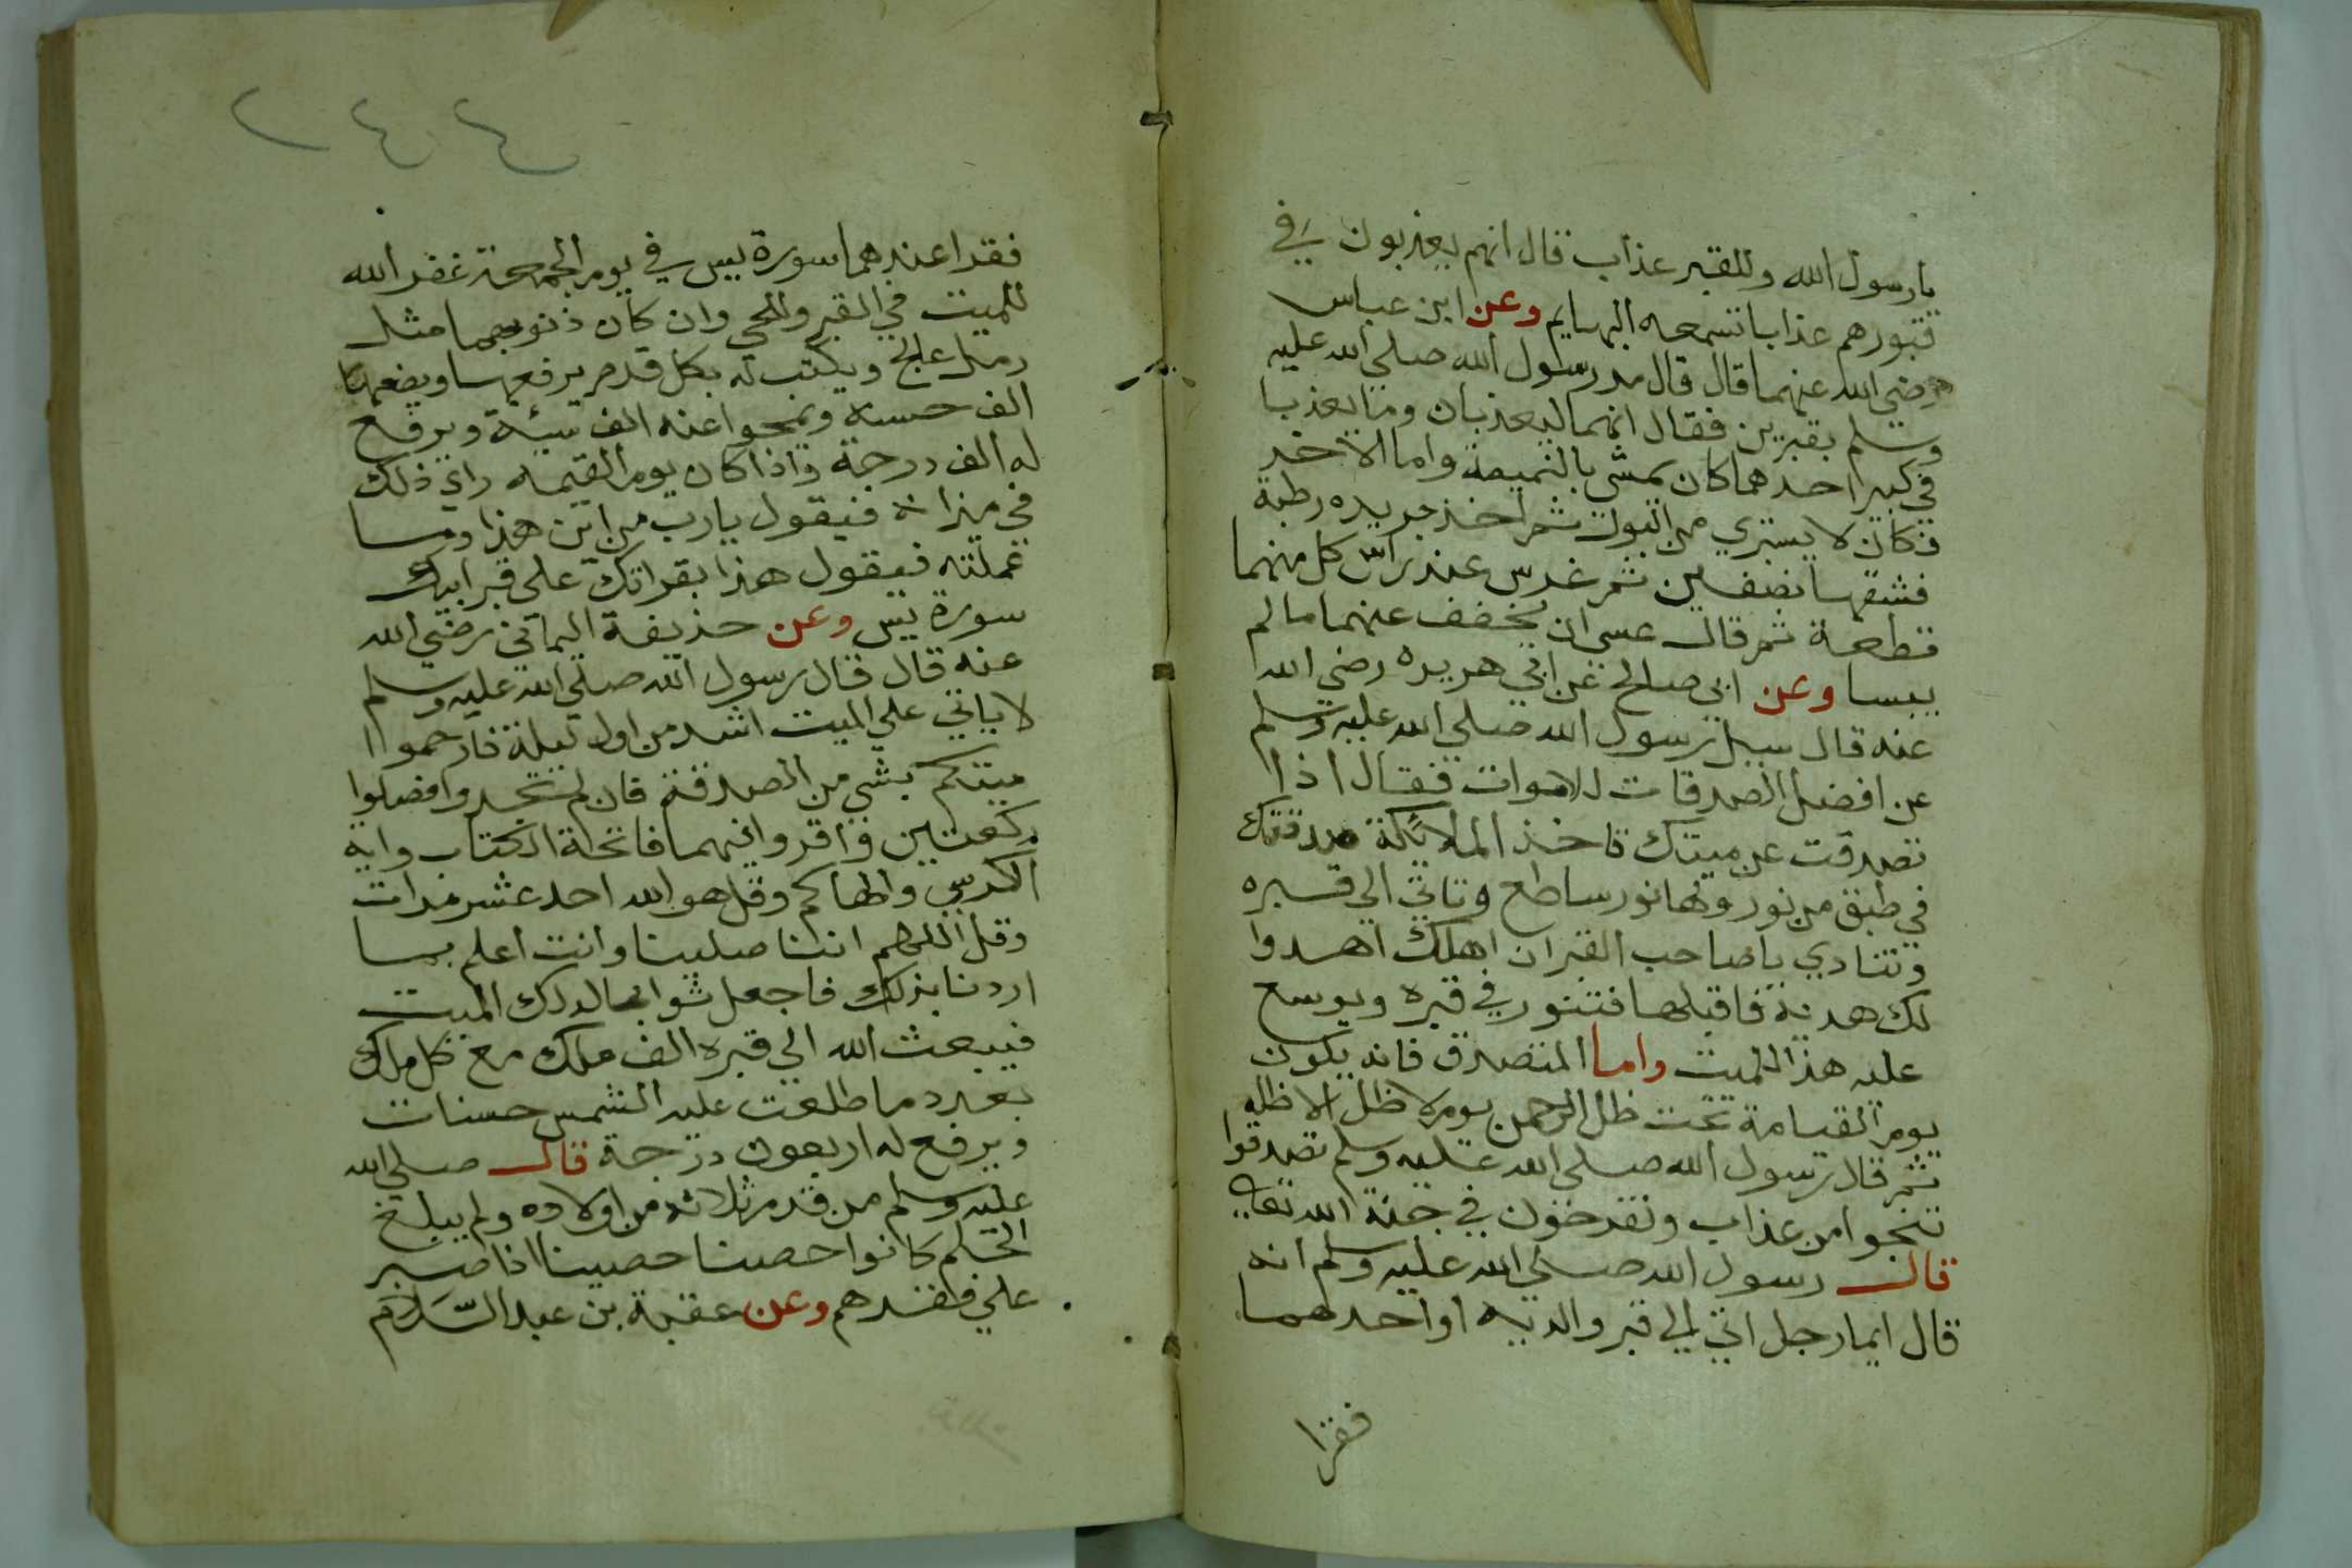 يارسول الله وللقبر عذاب قال انهم يعذبون في
قبورهم عذابا تسمعه البهايم وعن ابن عباس
رضي الله عنهما قال قال مر رسول الله صلى الله عليه
وسلم بقبرين فقال انهما ليعذبان وما يعذبا
في كبير احدهما كان يمشي بالنميمة واما الاخر
فكان لا يستبري من البول ثم اخذ جريده رطبة
فشقها نصفين ثم غرس عند راس كل منهما
قطعة ثم قال عسى ان يخفف عنهما ما لم
ييبسا وعن ابي صالح عن ابي هريره رضي الله
عنه قال سيل رسول الله صلى الله عليه وسلم
عن افضل الصدقات للاموات فقال اذا
تصدقت عن ميتك تاخذ الملايكة صدقتك
في طبق من نور ولها نور ساطع وتاتي الى قبره
وتنادي يا صاحب القبر ان اهلك اهدوا
لك هدية فاقبلها فتنور في قبره ويوسع
عليه هذا للميت واما المتصدق فانه يكون
يوم القيامة تحت ظل الرحمن يوم لا ظل الا ظله
ثم قال رسول الله صلى الله عليه وسلم تصدقوا
تنجوا من عذاب وتفرحون في جنة الله تعالى
قال رسول الله صلى الله عليه وسلم انه
قال ايما رجل اتي الي قبر والديه او احدهما
فقرا
٢٤٤
فقرا عندهما سورة يس في يوم الجمعة غفر الله
للميت في القبر وللحي وان كان ذنوبهما مثل
رمل عالج ويكتب له بكل قدم يرفعها ويضعها
الف حسنة ويمحوا عنه الف سيئة ويرفع
له الف درجة واذا كان يوم القيمه راي ذلك
في ميزانه فيقول يارب من اين هذا وما
عملته فيقول هذا بقراتك على قبر ابيك
سورة يس وعن حذيفة اليماني رضي الله
عنه قال قال رسول الله صلى الله عليه وسلم
لا ياتي علي الميت اشد من اول ليلة فارحموا
ميتكم بشي من الصدقة فان لم تجدوا فصلوا
ركعتين واقروا فيهما فاتحة الكتاب واية
الكرسي والهاكم وقل هو الله احد عشر مرات
وقل اللهم اننا صلينا وانت اعلم بما
اردنا بذلك فاجعل ثوابها لذلك الميت
فيبعث الله الي قبره الف ملك مع كل ملك
بعدد ما طلعت عليه الشمس حسنات
ويرفع له اربعون درجة قال صلي الله
عليه وسلم من قدم ثلاثه من اولاده ولم يبلغ
الحلم كانوا حصنا حصينا اذا صبر
علي فقدهم وعن عقبة بن عبد السلام